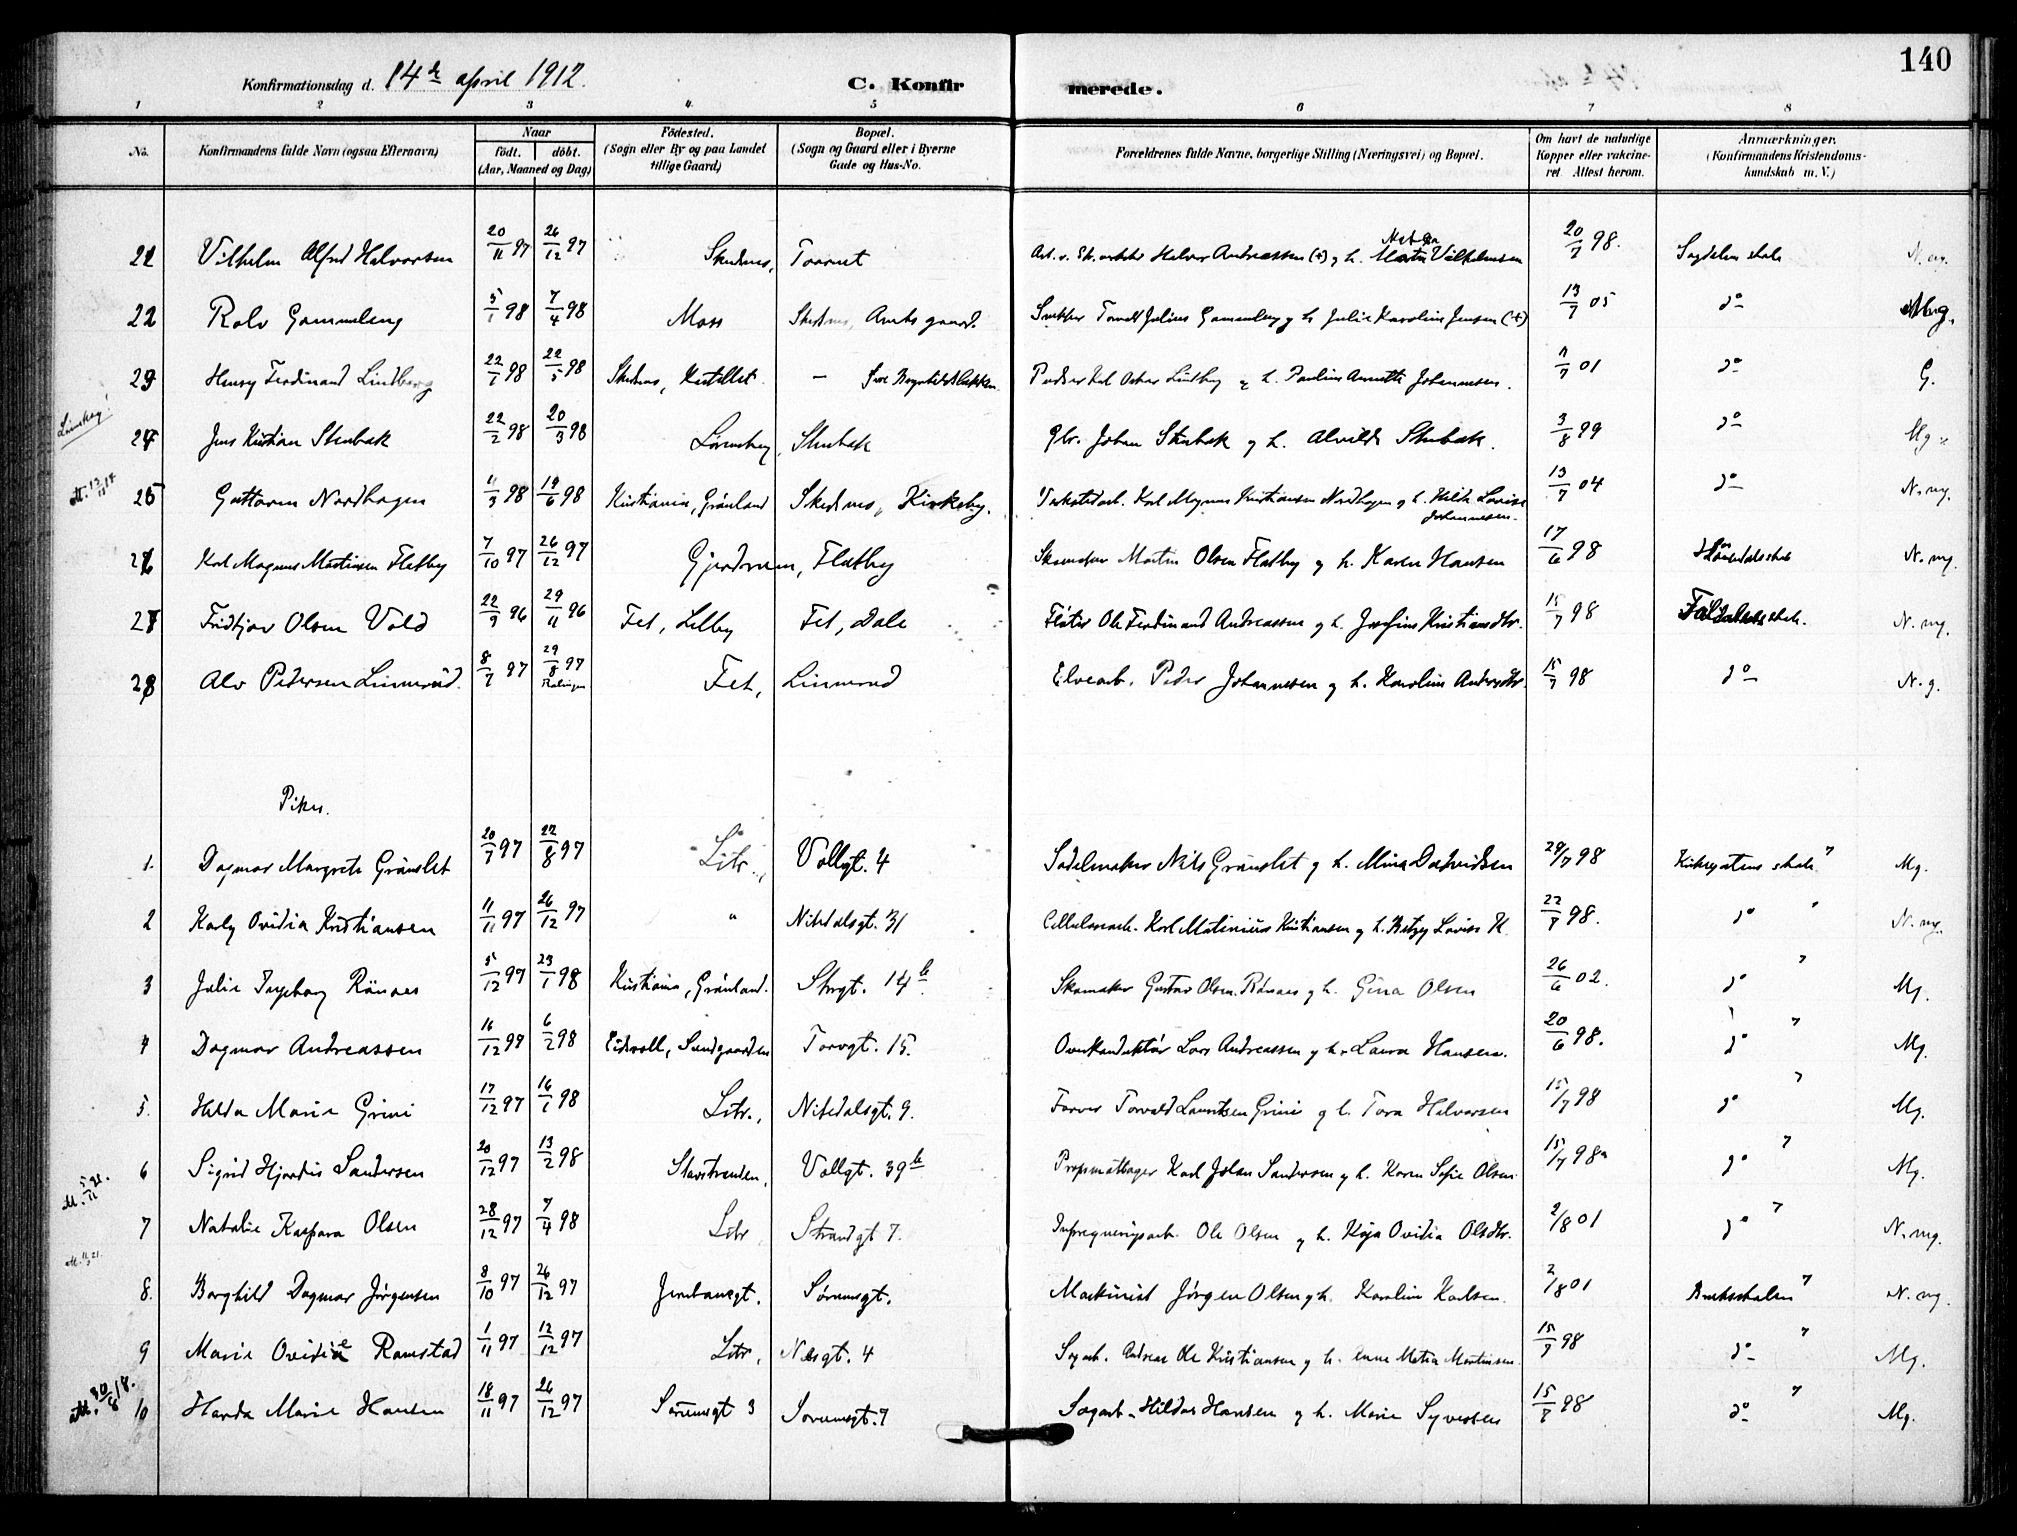 140
Konfirmationsdag d. 14de april 1912.
C. Konfirmerede.
1 2 3 4 5 6 7 8
No.
Konfirmandens fulde Navn (ogsaa Efternavn)
Naar
födt. döbt.
(Aar, Maaned og Dag)
Födested.
(Sogn eller By og paa Landet
tillige Gaard)
Bopæl.
(Sogn og Gaard eller i Byerne
Gade og Hus-No.
Forældrenes fulde Navne, borgerlige Stilling (Næringsvei) og Bopæl.
Om havt de naturlige
Kopper eller vakcine-
ret Attest herom.
Anmærkninger.
(Konfirmandens Kristendoms-
kundskab m. V.)
21 Vilhelm Alfred Halvorsen 20/11 97 26/12 97 Skedsmo, Torvet Halvor Andreassen (+) g h. Vilhelmsen 20/7 98. Sagdalen skole N. mg.
22 Rolv Gammeleng 5/1 98 7/4 98 Moss Skedsmo, Amtsgaard. Torvald Julius Gammeleng g h. Julie Karoline Jensen (+) 13/7 05 do Mg.
23 Henry Ferdinand Lindberg 22/1 98 22/5 98 Skedsmo, — Oskar Lindberg g h. Pauline Annette Johannessen. 7/7 01 do G.
24 Jens Kristian Stenbæk 22/2 98 20/3 98 Lörenskog, Stenbæk Gbr. Johan Stenbæk g h. Alvilde Stenbæk. 3/8 99 do Mg
25 Guttorm Nordhagen 11/3 98 19/6 98 Kristiania, Grönland Skedsmo, Kirkeby. Verkstedarb. Karl Magnus Kristiansen Nordhagen g h. Hilda Lovise
Johannessen. 13/7 04 do N. mg.
26 Karl Magnus Martinsen Flatby 7/10 97 26/12 97 Gjerdrum, Flatby Skomaker Martin Olsen Flatby g h. Karen Hansen 17/6 98 N. mg.
27 Fridtjov Olsen Vold 22/9 96 29/11 96 Fet, Lelby Fet, Dale Flöter Ole Ferdinand Andreassen g h. Josefine Kristiansdtr. 15/7 98 Faldalens skole. N. mg.
28 Alv Pedersen Linnerud. 8/7 97 29/8 97 Fet, Linnerud Elvearb. Peder Johannesen g h. Karoline Andersdtr. 15/7 98 do N. g.
Piker.
1. Dagmar Margrete Grönslet 20/7 97 22/8 97 Litr., Vollgt. 4 Sadelmaker Nils Grönslet g h. Mina Davidsen 29/7 98 Kirkegatens skole Mg.
2 Karly Ovidia Kristiansen 11/11 97 26/12 97 " Nitedalsgt. 31 Cellulosearb. Karl Matinius Kristiansen g h. Betzy Lovise K. 22/7 98. do N. mg.
3 Julie Ingeborg Rönaas 5/12 97 23/1 98 Kristiania, Grönland. Storgt. 14b Skomaker Gustav Olsen Rönaas g h. Gina Olsen 26/6 02. do Mg.
4 Dagmar Andreassen 16/12 97 6/2 98 Eidsvoll, Sundgaarden Torvgt. 15. Overkonduktör Lars Andreassen g h. Laura Hansen. 20/6 98. do Mg.
5. Hilda Marie Grini 17/12 97 16/1 98 Litr., Nitedalsgt. 9. Farver Torvald Lauritsen Grini g h. Tora Halvorsen 15/7 98 do Mg.
6 Sigrid Hjördis Sandersen 20/12 97 13/2 98 Vollgt. 39b Karl Johan Sandersen g h. Karen Sofie Olsen 15/7 98 do Mg.
7 Natalie Kaspara Olsen 28/12 97 7/4 98 Litr Strandgt 7. Impregneringsarb. Ole Olsen g h. Kaja Ovidia Olsdtr. 2/8 01 do N. mg.
8. Borghild Dagmar Jörgensen 8/10 97 26/12 97 Jernbanegt. Sörumsgt. Maskinist Jörgen Olsen g h. Karoline Karlsen. 2/8 01 N. mg.
9 Marie Ovidie Ramstad 1/11 97 12/12 97 Litr., Nesgt. 4 Sagarb. Andreas Ole Kristiansen g h. Anne Matea Martinsen 15/7 98 do Mg.
10 Harda Marie Hansen 18/11 97 26/12 97 Sörumsgt 3 Sörumsgt. 7 Sagarb. Hildar Hansen g h. Marie Syversen 15/7 98 do Mg.